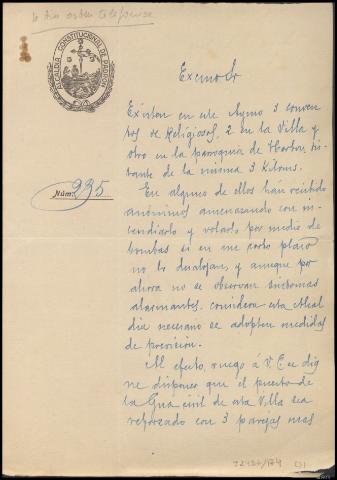 Se dio orden telefonica
ALCALDIA CONSTITUCIONAL DE PADRON
Excmo Sr
Existen en este Aymto 3 conven-
tos de Religiosos, 2 en la Villa y
otro en la parroquia de Herbon, dis-
tante de la misma 3 Kiloms.
Núm. 235
En algunos de ellos han recibido
anonimos amenazando con in-
cendiarlo y volarlo por medio de
bombas si en un corto plazo
no lo desalojan, y aunque por
ahora no se observan sintomas
alarmantes, considera esta Alcal
dia necesario se adopten medidas
de precisión.
Al efecto, ruego á V.E. se dig
ne disponer que el puesto de
la Gua civil de esta Villa sea
reforzado con 3 parejas mas